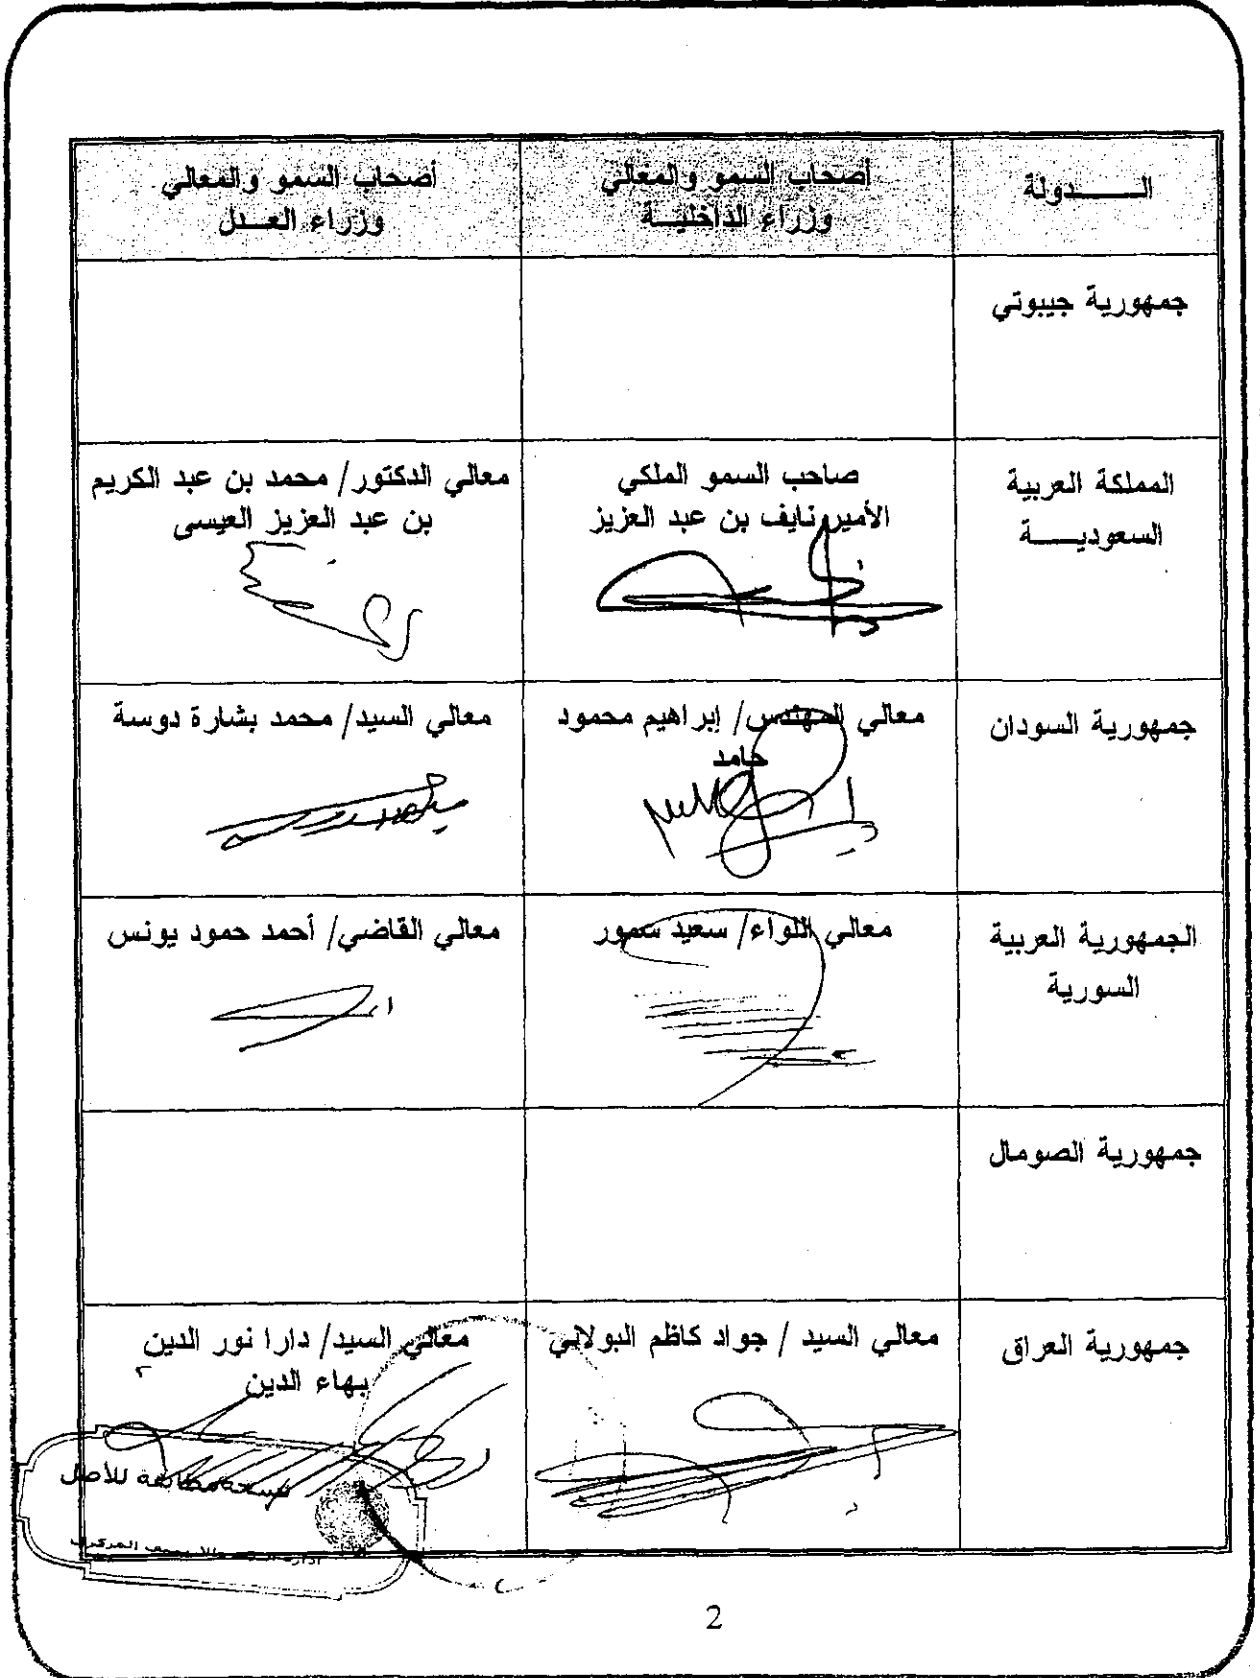 الـــــدولة
أصحاب السمو والمعالي
وزراء الداخليـــة
أصحاب السمو والمعالي
وزراء العـــدل
جمهورية جيبوتي
المملكة العربية
السعوديـــــة
صاحب السمو الملكي
الأمير نايف بن عبد العزيز
معالي الدكتور/ محمد بن عبد الكريم
بن عبد العزيز العيسى
جمهورية السودان
معالي المهندس/ إبراهيم محمود
حامد
معالي السيد/ محمد بشارة دوسة
الجمهورية العربية
السورية
معالي اللواء/ سعيد سمور
معالي القاضي/ أحمد حمود يونس
جمهورية الصومال
جمهورية العراق
معالي السيد / جواد كاظم البولاني
معالي السيد/ دارا نور الدين
بهاء الدين
نسخة مطابقة للأصل
2